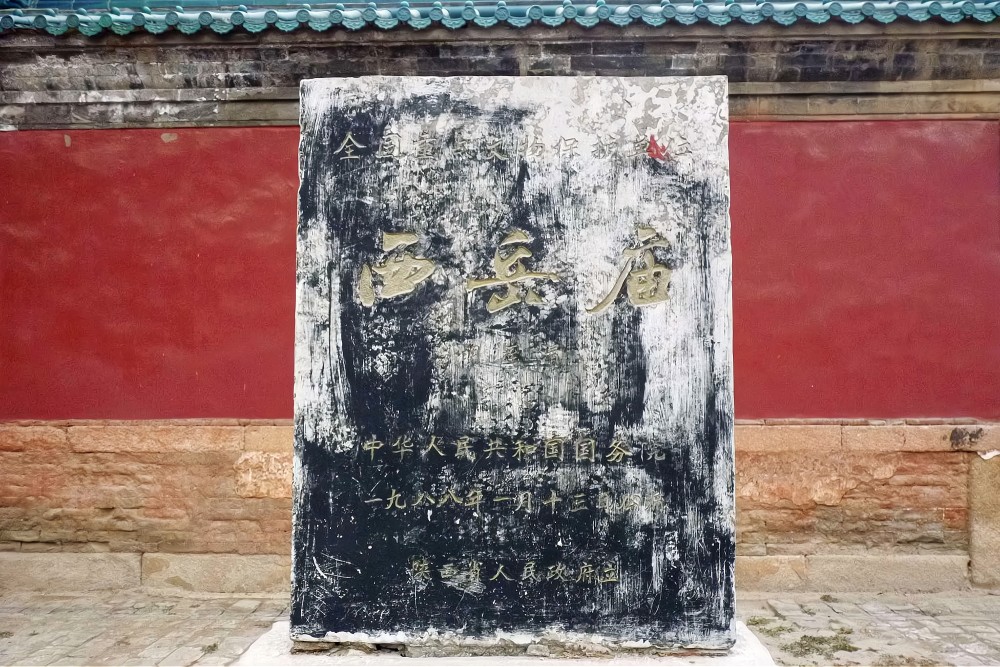 全国重点文物保护单位
西岳庙
中华人民共和国国务院
一九八八年一月十三日公布
陕西省人民政府立